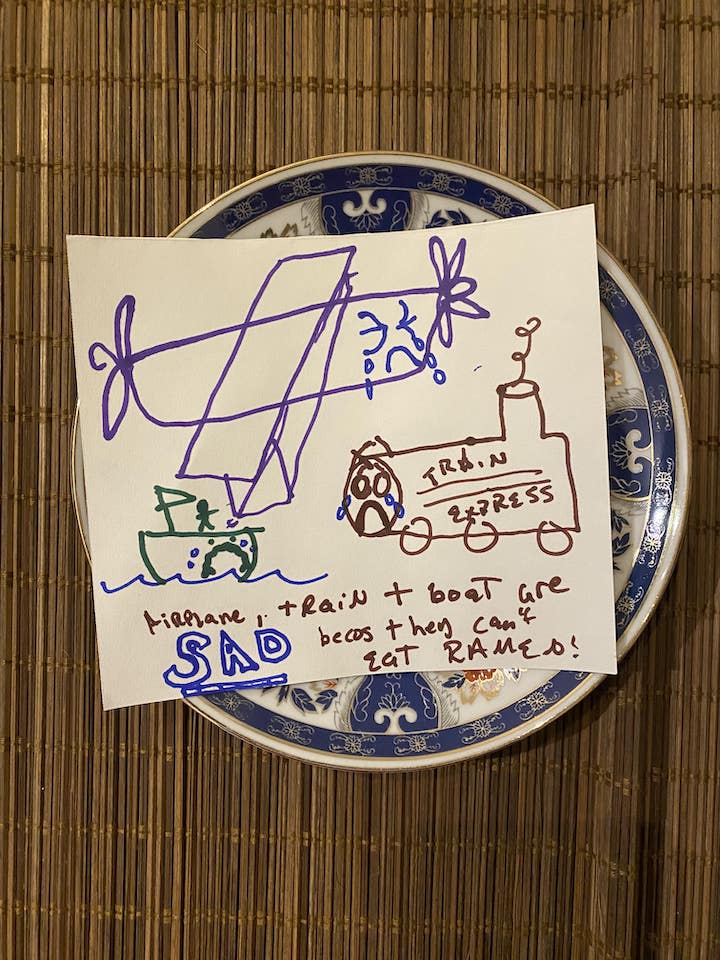 TRAIN
EXPRESS
AiRPlane, +RaiN + boaT are
SAD becos they can't
EaT RAMEN!